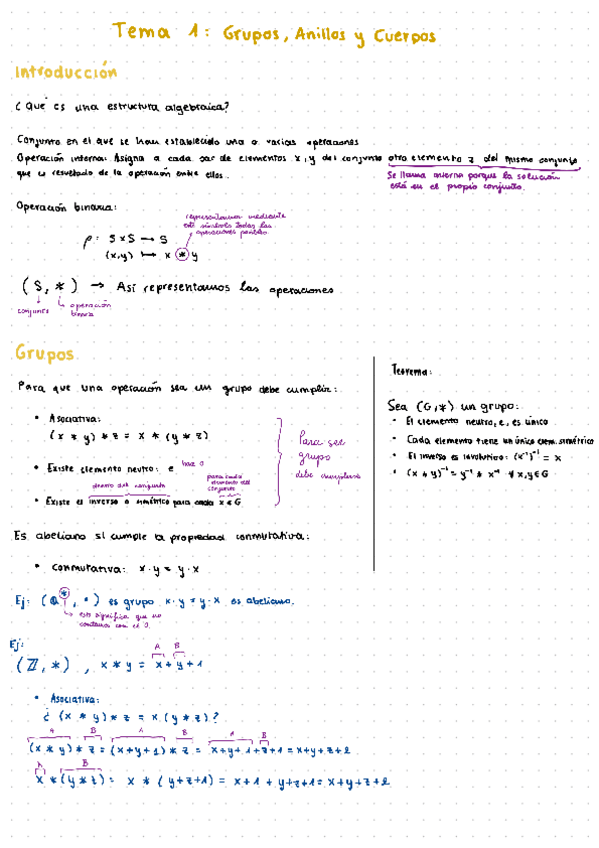 Tema 1: Grupos, Anillos y Cuerpos
Introducción
¿Qué es una estructura algebraica?
Conjunto en el que se han establecido una o varias operaciones
Operación interna: Asigna a cada par de elementos x,y del conjunto otro elemento z del mismo conjunto,
que es resultado de la operación entre ellos.
Se llama interna porque la solución
está en el propio conjunto.
Operación binaria:
representamos mediante
este símbolo todas las
operaciones posibles
ρ: S×S → S
(x,y) ↦ x * y
(S, *) → Así representamos las operaciones
conjunto
operación
binaria
Grupos
Para que una operación sea un grupo debe cumplir:
• Asociativa:
(x * y) * z = x * (y * z)
• Existe elemento neutro: e
dentro del conjunto
para cada
elemento del
conjunto
• Existe el inverso o simétrico para cada x ∈ G
Para ser
grupo
debe cumplirse
Es abeliano si cumple la propiedad conmutativa:
• Conmutativa: x · y = y · x
Teorema:
Sea (G,*) un grupo:
• El elemento neutro, e, es único
• Cada elemento tiene un único elem. simétrico
• El inverso es involutivo: (x⁻¹)⁻¹ = x
• (x * y)⁻¹ = y⁻¹ * x⁻¹ ∀ x,y ∈ G
Ej: (Q*, ·) es grupo x · y = y · x es abeliano.
esto significa que no
contamos con el 0.
Ej:
A B
(ℤ, *) , x * y = x + y + 1
• Asociativa:
¿ (x * y) * z = x (y * z) ?
A B A B A B
(x * y) * z = (x+y+1) * z = x+y+1+z+1 = x+y+z+2
A B
x * (y * z) = x * (y+z+1) = x+1+y+z+1 = x+y+z+2